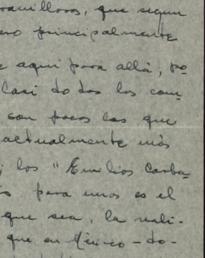 ravillosos, que siguen
ero principalmente
e aquí para allá, po
Casi todos los com
son pocos los que
actualmente más
los "Emilios Carba
s para unos es el
que sea, la reali-
que en México - do-